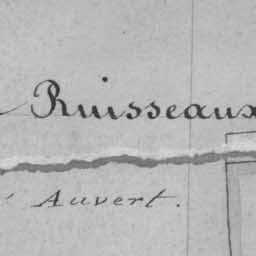 Ruisseaux
Auvert.